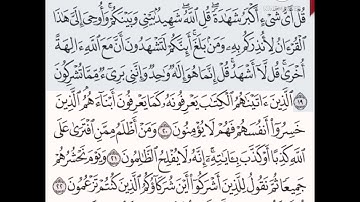 قُلْ أَىُّ شَىْءٍ أَكْبَرُ شَهَٰدَةً ۖ قُلِ ٱللَّهُ ۖ شَهِيدٌۢ بَيْنِى وَبَيْنَكُمْ ۚ وَأُوحِىَ إِلَىَّ هَٰذَا
ٱلْقُرْءَانُ لِأُنذِرَكُم بِهِۦ وَمَنۢ بَلَغَ ۚ أَئِنَّكُمْ لَتَشْهَدُونَ أَنَّ مَعَ ٱللَّهِ ءَالِهَةً
أُخْرَىٰ ۚ قُل لَّآ أَشْهَدُ ۚ قُلْ إِنَّمَا هُوَ إِلَٰهٌ وَٰحِدٌ وَإِنَّنِى بَرِىٓءٌ مِّمَّا تُشْرِكُونَ
١٩ ٱلَّذِينَ ءَاتَيْنَٰهُمُ ٱلْكِتَٰبَ يَعْرِفُونَهُۥ كَمَا يَعْرِفُونَ أَبْنَآءَهُمُ ٱلَّذِينَ
خَسِرُوٓا۟ أَنفُسَهُمْ فَهُمْ لَا يُؤْمِنُونَ ٢٠ وَمَنْ أَظْلَمُ مِمَّنِ ٱفْتَرَىٰ عَلَى
ٱللَّهِ كَذِبًا أَوْ كَذَّبَ بِـَٔايَٰتِهِۦٓ ۗ إِنَّهُۥ لَا يُفْلِحُ ٱلظَّٰلِمُونَ ٢١ وَيَوْمَ نَحْشُرُهُمْ
جَمِيعًا ثُمَّ نَقُولُ لِلَّذِينَ أَشْرَكُوٓا۟ أَيْنَ شُرَكَآؤُكُمُ ٱلَّذِينَ كُنتُمْ تَزْعُمُونَ ٢٢